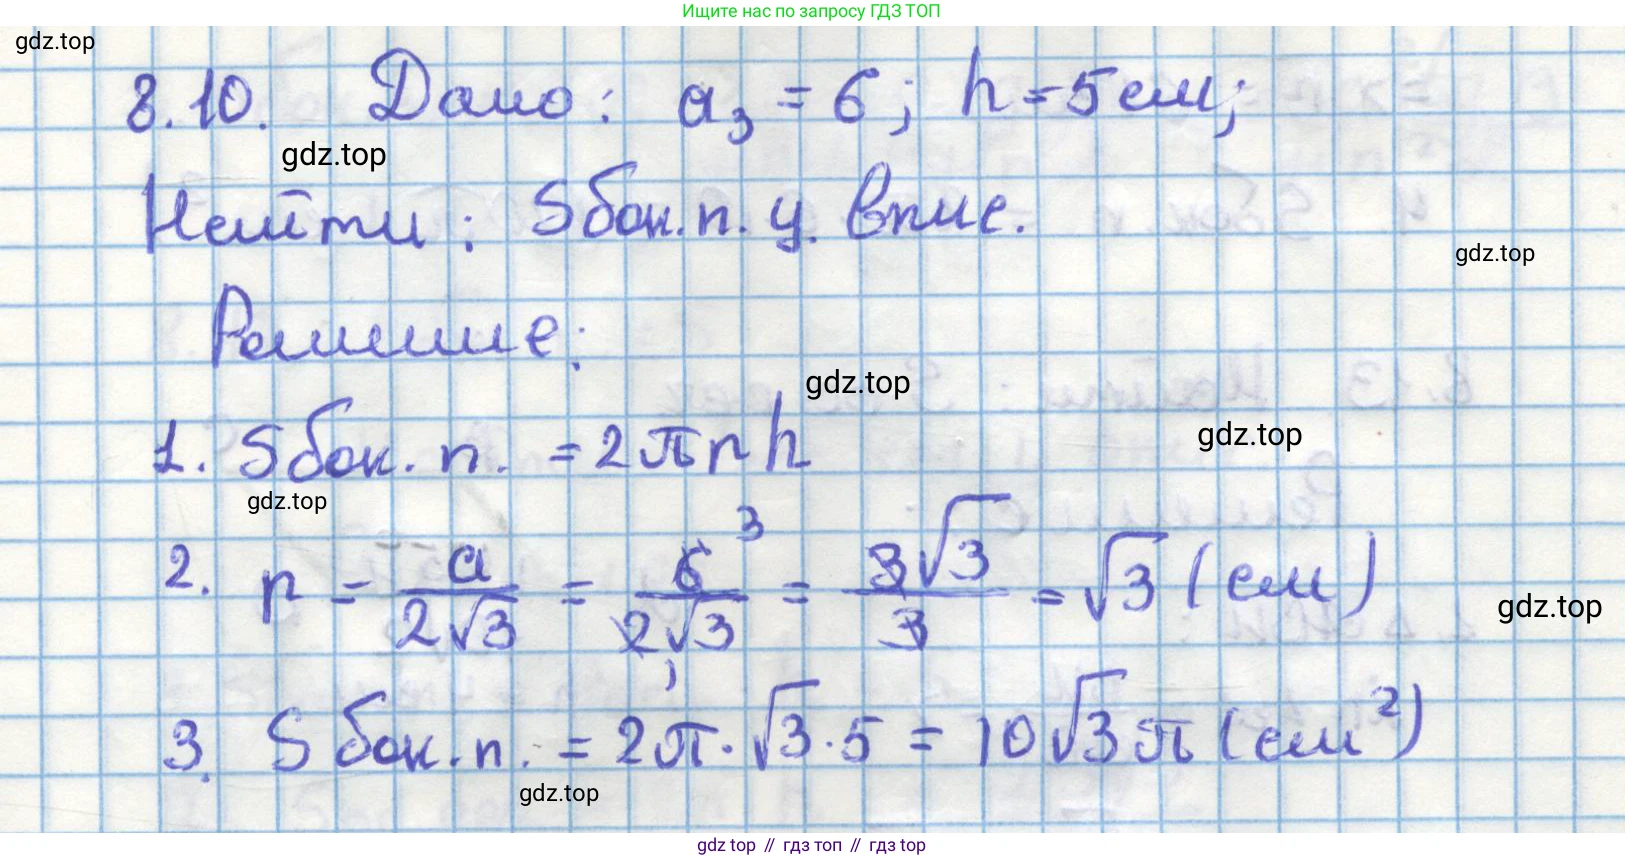 Ищите нас по запросу ГДЗ ТОП
gdz.top
8.10. Дано: a₃ = 6; h = 5 см;
gdz.top
Найти: Sбок.п.ц. впис.
gdz.top
Решение:
gdz.top
gdz.top
1. Sбок. п. = 2πrh
gdz.top
2. r = a/(2√3) = 6³/(2√3) = 3√3/3 = √3 (см)
1
gdz.top
3. Sбок.п. = 2π·√3·5 = 10√3π (см²)
gdz.top
gdz top // гдз топ // gdz top